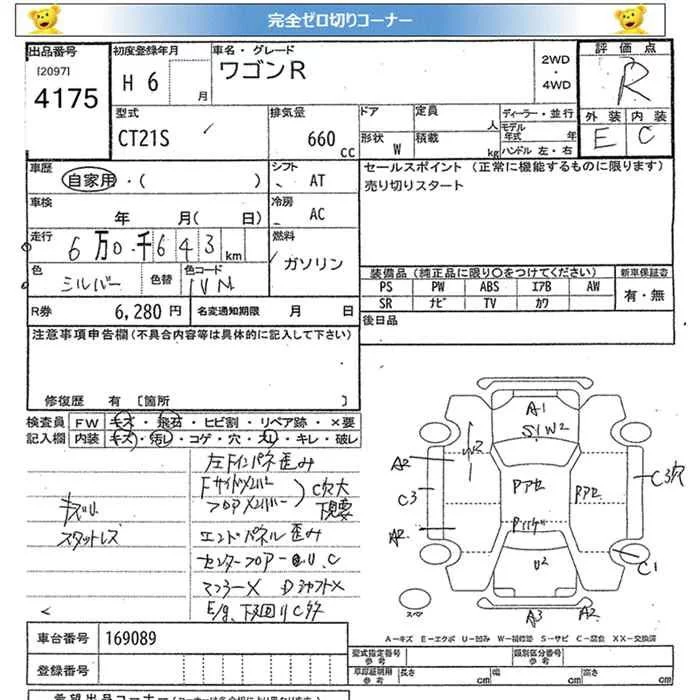 完全ゼロ切りコーナー
出品番号
[2097]
4175
初度登録年月
H 6
月
車名・グレード
ワゴンR
2WD
・
4WD
評価点
R
外装 内装
E C
型式
CT21S
排気量
660
cc
ドア
定員
人
形状
W
積載
kg
ディーラー・並行
モデル年式
年
ハンドル 左・右
車歴
自家用・( )
シフト
AT
セールスポイント (正常に機能するものに限ります)
売り切りスタート
車検
年 月( 日)
冷房
AC
走行
6 万 0 千 6 4 3 km
燃料
ガソリン
色
シルバー
色替
色コード
装備品(純正品に限り〇をつけてください)
新車保証書
PS PW ABS エアB AW
SR ナビ TV カワ
有・無
R券
6,280 円
名変通知期限 月 日
後日品
注意事項申告欄(不具合内容等は具体的に記入して下さい)
修復歴 有 [箇所 ]
検査員
記入欄
FW キズ・飛石・ヒビ割・リペア跡・×要
内装 キズ・汚レ・コゲ・穴・丸・キレ・破レ
左Fインパネ歪み
Fサイドメンバー
フロアメンバー
C穴大
下見要
キズリ
スタットレス
エンドパネル歪み
センターフロアー U、C
マフラーX DシャフトX
E/g、下回りC多
A1
S1W2
W2
A2
C3
A2
Pアセ
Pアセ
C3穴
C1
U2
A3
A2
スペア
A-キズ E-エクボ U-凹み W-補修跡 S-サビ C-腐食 XX-交換済
車台番号
169089
登録番号
型式指定番号
参考
類別区分番号
参考
車庫証明用
参考
長さ cm
幅 cm
高さ cm
希望出品コーナー